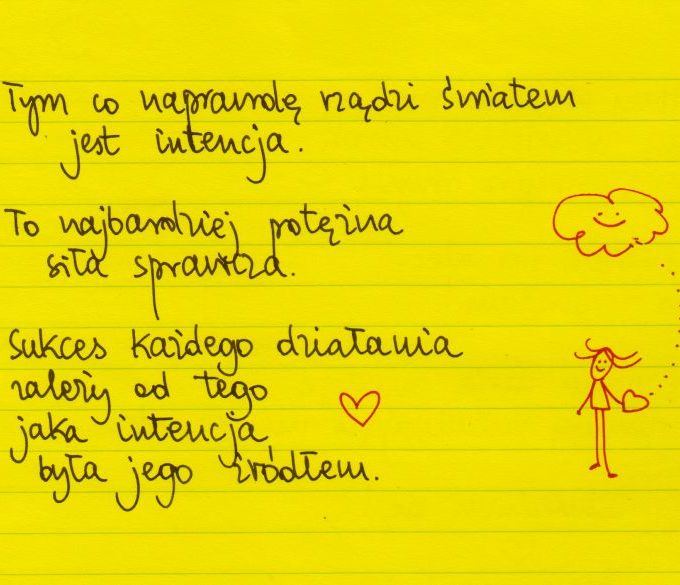 Tym co naprawdę rządzi światem
jest intencja.
To najbardziej potężna
siła sprawcza.
Sukces każdego działania
zależy od tego
jaka intencja
była jego źródłem.